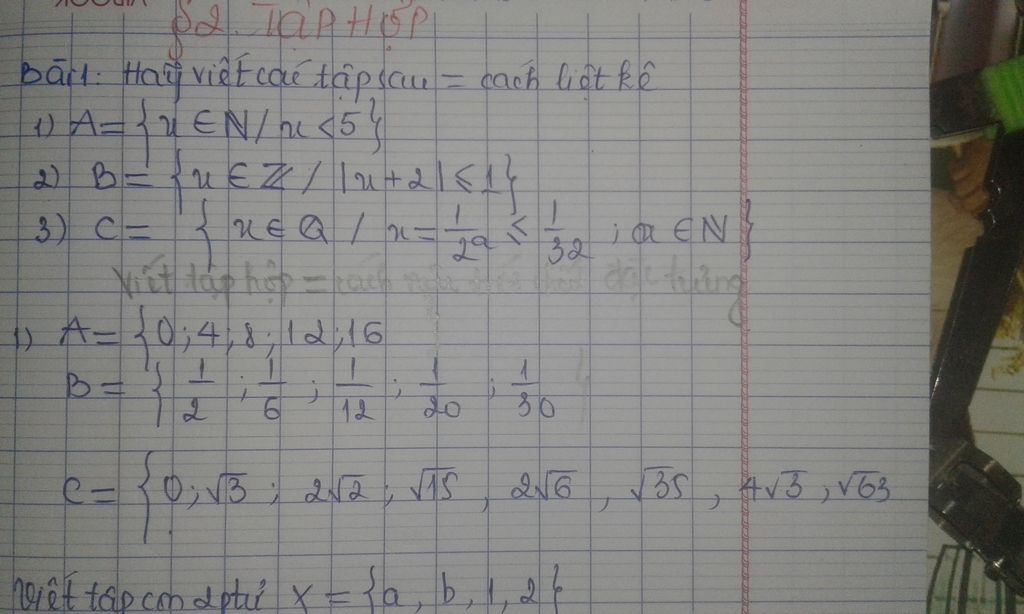 §2. TẬP HỢP
Bài 1: Hãy viết các tập sau = cách liệt kê
1) A = { x ∈ N / x < 5 }
2) B = { x ∈ Z / |x + 2| ≤ 1 }
3) C = { x ∈ Q / x = 1/2^a ≤ 1/32 ; a ∈ N }
Viết tập hợp = cách đặc trưng
1) A = { 0 ; 4 ; 8 ; 12 ; 16
B = { 1/2 ; 1/6 ; 1/12 ; 1/20 ; 1/30
C = { 0 ; √3 ; 2√2 ; √15 , 2√6 , √35 , 4√3 , √63
Viết tập con 2 ptử X = { a , b , 1 , 2 }